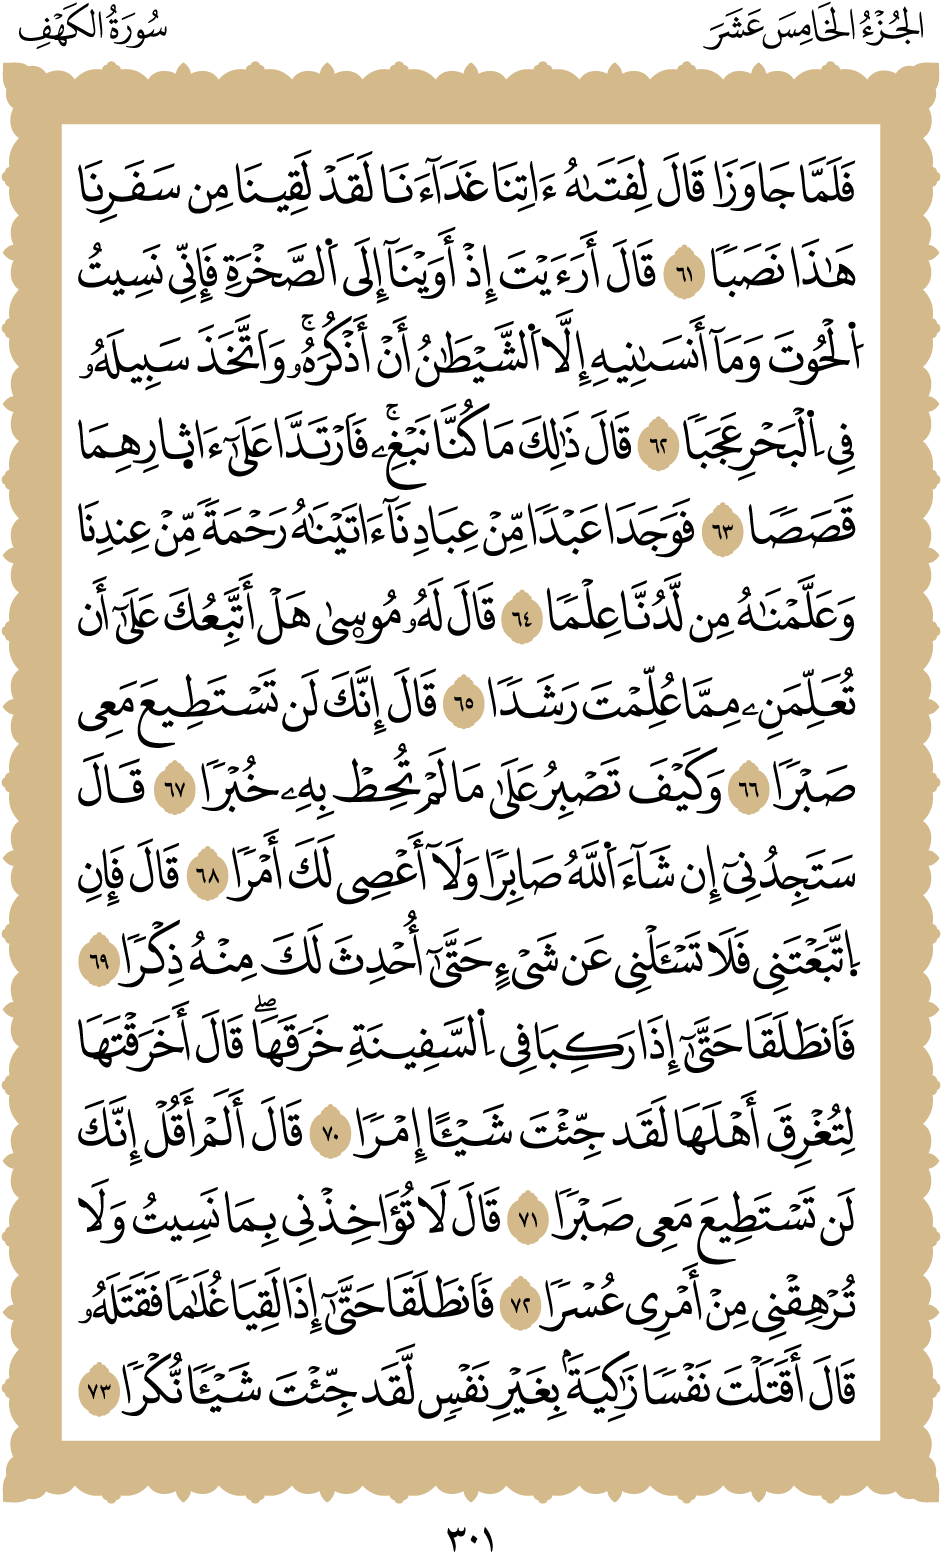 الجُزْءُ الخَامِسَ عَشَرَ
سُورَةُ الكَهْفِ
فَلَمَّا جَاوَزَا قَالَ لِفَتَىٰهُ ءَاتِنَا غَدَآءَنَا لَقَدْ لَقِينَا مِن سَفَرِنَا
هَٰذَا نَصَبٗا ٦١ قَالَ أَرَءَيْتَ إِذْ أَوَيْنَآ إِلَى اَ۬لصَّخْرَةِ فَإِنِّي نَسِيتُ
اُ۬لْحُوتَ وَمَآ أَنسَىٰنِيهِ إِلَّا اَ۬لشَّيْطَٰنُ أَنْ أَذْكُرَهُۥۚ وَاَتَّخَذَ سَبِيلَهُۥ
فِي اِ۬لْبَحْرِ عَجَبٗا ٦٢ قَالَ ذَٰلِكَ مَا كُنَّا نَبْغِۦۚ فَاَرْتَدَّا عَلَىٰٓ ءَاثٜارِهِمَا
قَصَصٗا ٦٣ فَوَجَدَا عَبْدٗا مِّنْ عِبَادِنَآ ءَاتَيْنَٰهُ رَحْمَةٗ مِّنْ عِندِنَا
وَعَلَّمْنَٰهُ مِن لَّدُنَّا عِلْمٗا ٦٤ قَالَ لَهُۥ مُوسٜىٰ هَلْ أَتَّبِعُكَ عَلَىٰٓ أَن
تُعَلِّمَنِۦ مِمَّا عُلِّمْتَ رَشَدٗا ٦٥ قَالَ إِنَّكَ لَن تَسْتَطِيعَ مَعِي
صَبْرٗا ٦٦ وَكَيْفَ تَصْبِرُ عَلَىٰ مَا لَمْ تُحِطْ بِهِۦ خُبْرٗا ٦٧ قَالَ
سَتَجِدُنِيٓ إِن شَآءَ اَ۬للَّهُ صَابِرٗا وَلَآ أَعْصِي لَكَ أَمْرٗا ٦٨ قَالَ فَإِنِ
اِ۪تَّبَعْتَنِي فَلَا تَسْـَٔلْنِي عَن شَيْءٍ حَتَّىٰٓ أُحْدِثَ لَكَ مِنْهُ ذِكْرٗا ٦٩
فَاَنطَلَقَا حَتَّىٰٓ إِذَا رَكِبَا فِي اِ۬لسَّفِينَةِ خَرَقَهَاۖ قَالَ أَخَرَقْتَهَا
لِتُغْرِقَ أَهْلَهَا لَقَد جِّئْتَ شَيْـًٔا إِمْرٗا ٧٠ قَالَ أَلَمْ أَقُلْ إِنَّكَ
لَن تَسْتَطِيعَ مَعِي صَبْرٗا ٧١ قَالَ لَا تُؤَاخِذْنِي بِمَا نَسِيتُ وَلَا
تُرْهِقْنِي مِنْ أَمْرِي عُسْرٗا ٧٢ فَاَنطَلَقَا حَتَّىٰٓ إِذَا لَقِيَا غُلَٰمٗا فَقَتَلَهُۥ
قَالَ أَقَتَلْتَ نَفْسٗا زَٰكِيَةَۢ بِغَيْرِ نَفْسٖ لَّقَد جِّئْتَ شَيْـٔٗا نُّكْرٗا ٧٣
٣٠١